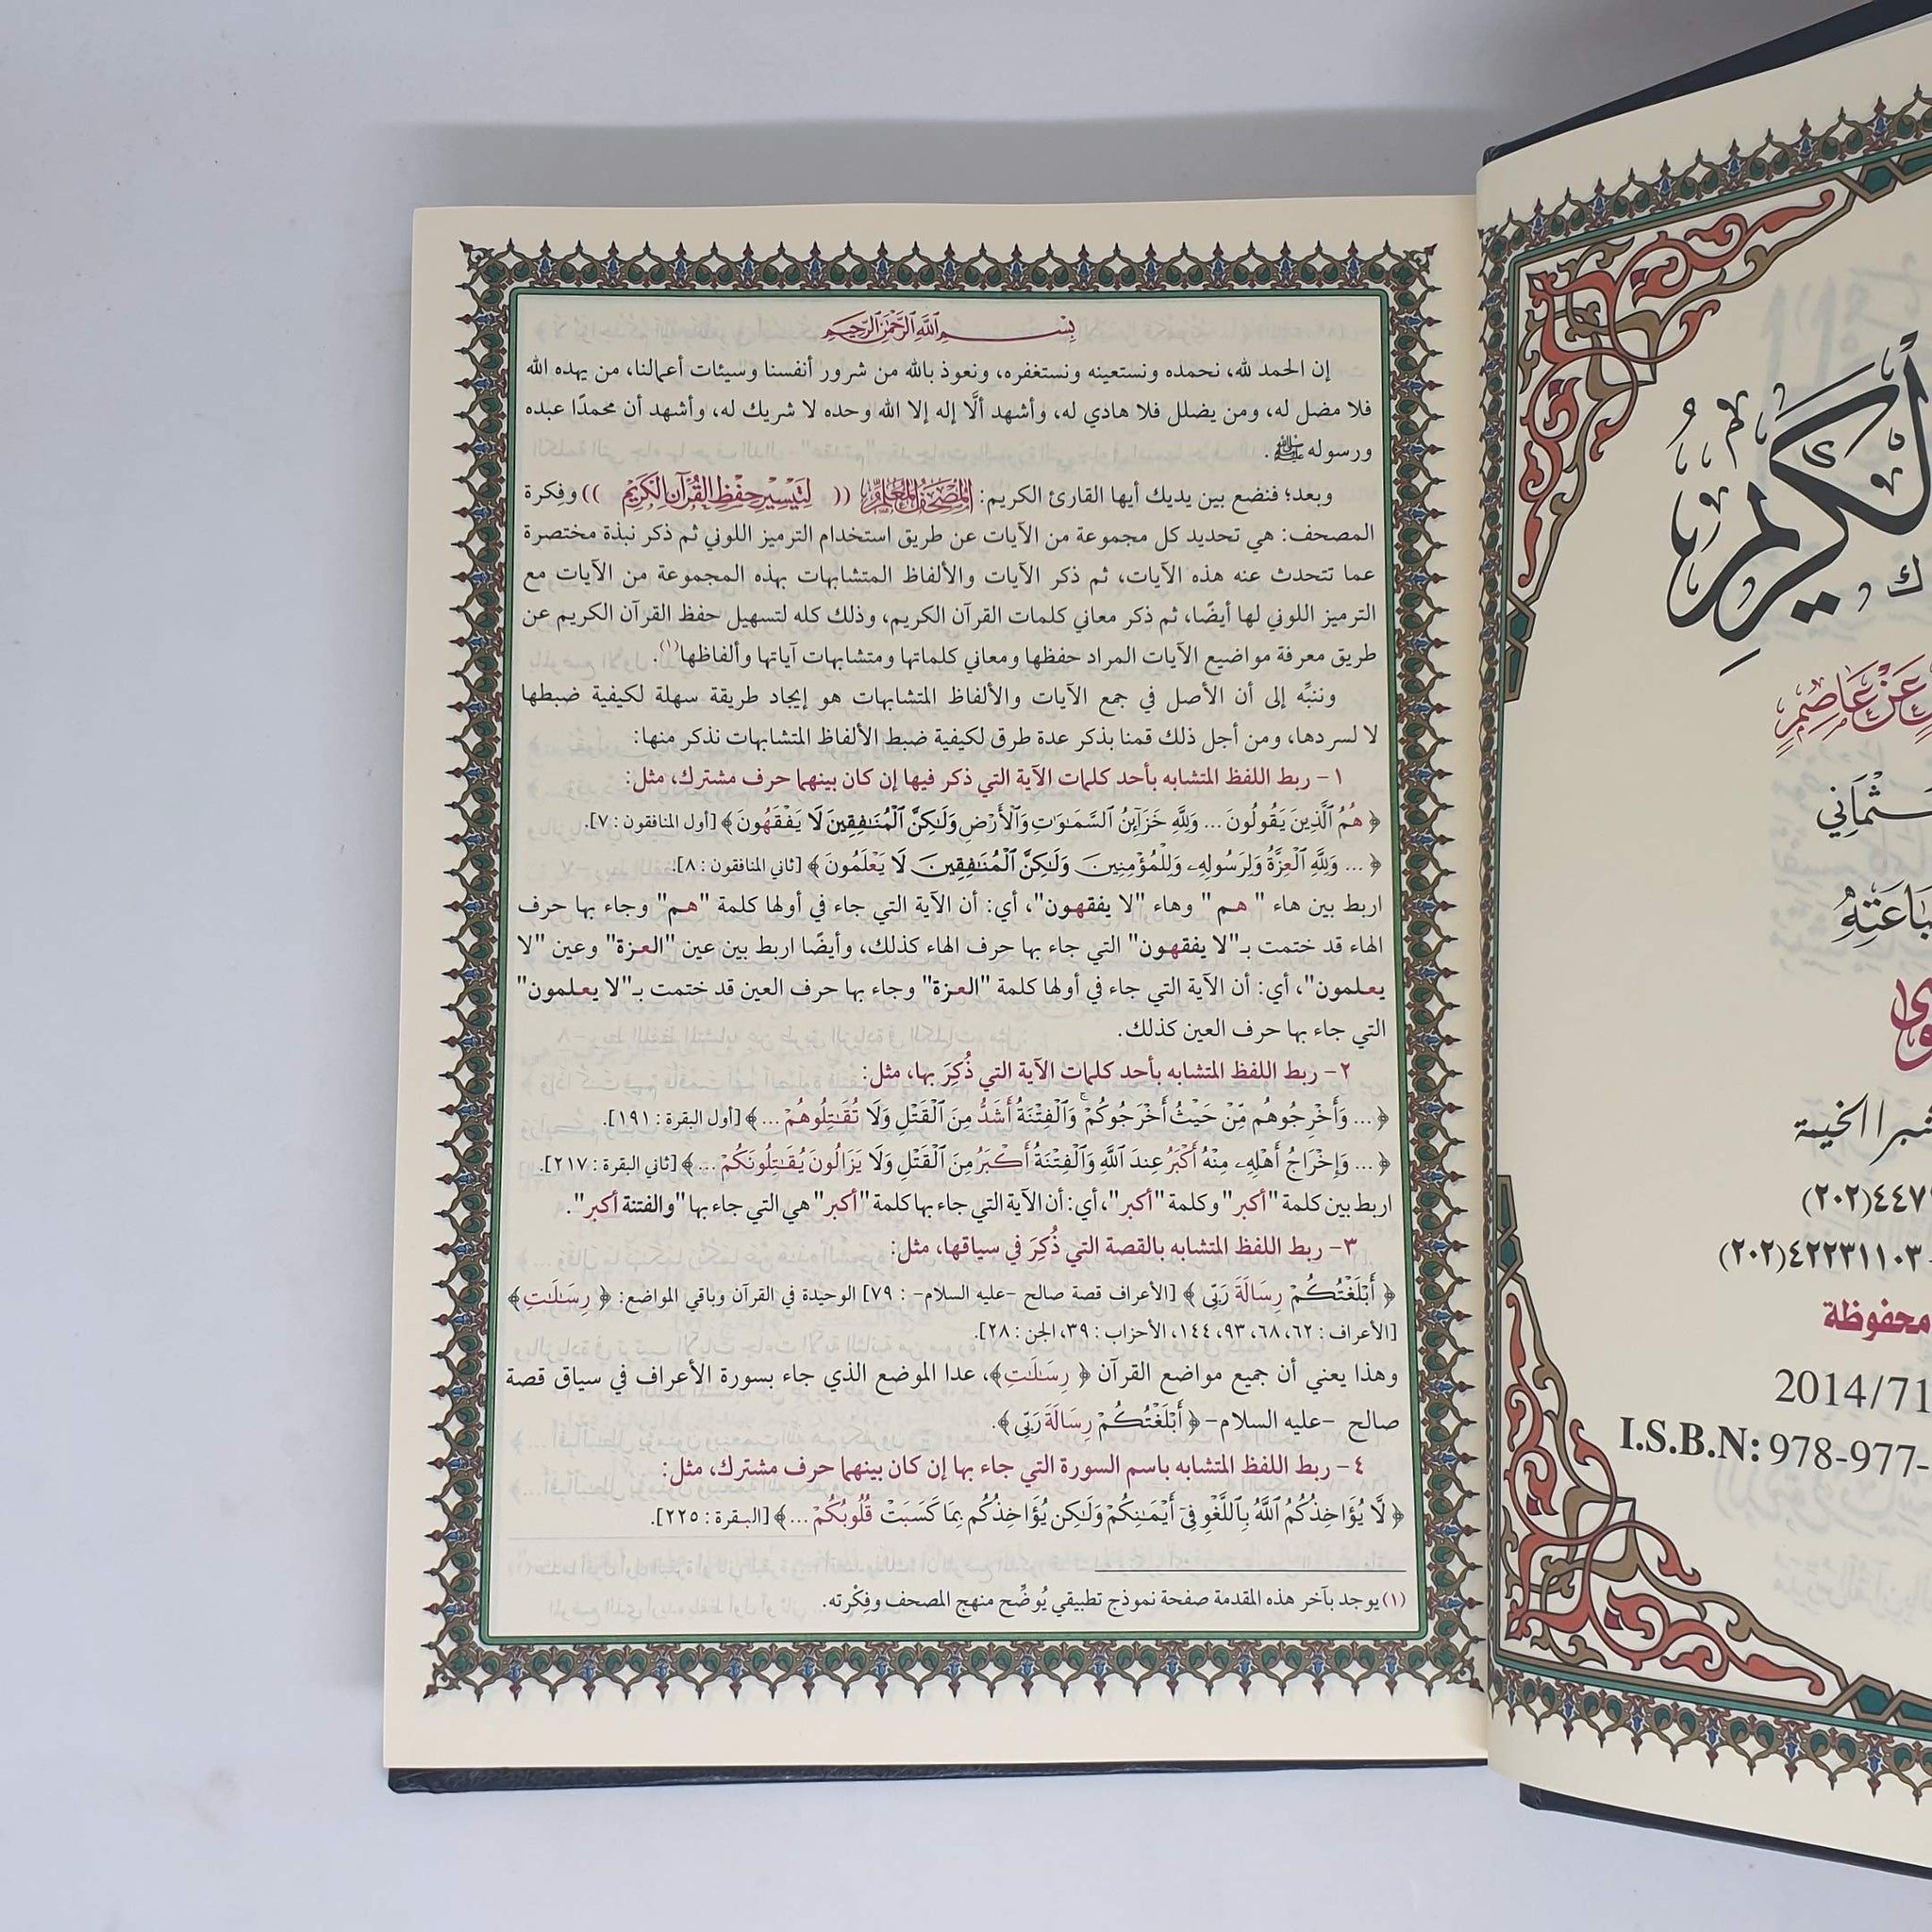 بِسْمِ ٱللَّهِ ٱلرَّحْمَٰنِ ٱلرَّحِيمِ
إن الحمد لله، نحمده ونستعينه ونستغفره، ونعوذ بالله من شرور أنفسنا وسيئات أعمالنا، من يهده الله
فلا مضل له، ومن يضلل فلا هادي له، وأشهد ألَّا إله إلا الله وحده لا شريك له، وأشهد أن محمدًا عبده
ورسوله ﷺ.
وبعد؛ فنضع بين يديك أيها القارئ الكريم: المُصْحَفُ المُعَلِّمُ (( لِتَيْسِيرِ حِفْظِ القُرْآنِ الكَرِيمِ )) وفِكرة
المصحف: هي تحديد كل مجموعة من الآيات عن طريق استخدام الترميز اللوني ثم ذكر نبذة مختصرة
عما تتحدث عنه هذه الآيات، ثم ذكر الآيات والألفاظ المتشابهات بهذه المجموعة من الآيات مع
الترميز اللوني لها أيضًا، ثم ذكر معاني كلمات القرآن الكريم، وذلك كله لتسهيل حفظ القرآن الكريم عن
طريق معرفة مواضيع الآيات المراد حفظها ومعاني كلماتها ومتشابهات آياتها وألفاظها(١).
وننبِّه إلى أن الأصل في جمع الآيات والألفاظ المتشابهات هو إيجاد طريقة سهلة لكيفية ضبطها
لا لسردها، ومن أجل ذلك قمنا بذكر عدة طرق لكيفية ضبط الألفاظ المتشابهات نذكر منها:
١- ربط اللفظ المتشابه بأحد كلمات الآية التي ذكر فيها إن كان بينهما حرف مشترك، مثل:
﴿ هُمُ ٱلَّذِينَ يَقُولُونَ ... وَلِلَّهِ خَزَآئِنُ ٱلسَّمَٰوَٰتِ وَٱلْأَرْضِ وَلَٰكِنَّ ٱلْمُنَٰفِقِينَ لَا يَفْقَهُونَ﴾ [أول المنافقون : ٧].
﴿ ... وَلِلَّهِ ٱلْعِزَّةُ وَلِرَسُولِهِۦ وَلِلْمُؤْمِنِينَ وَلَٰكِنَّ ٱلْمُنَٰفِقِينَ لَا يَعْلَمُونَ﴾ [ثاني المنافقون : ٨].
اربط بين هاء "هـم" وهاء "لا يفقهـون"، أي: أن الآية التي جاء في أولها كلمة "هـم" وجاء بها حرف
الهاء قد ختمت بـ"لا يفقهـون" التي جاء بها حرف الهاء كذلك، وأيضًا اربط بين عين "العـزة" وعين "لا
يعـلمون"، أي: أن الآية التي جاء في أولها كلمة "العـزة" وجاء بها حرف العين قد ختمت بـ"لا يعـلمون"
التي جاء بها حرف العين كذلك.
٢- ربط اللفظ المتشابه بأحد كلمات الآية التي ذُكِرَ بها، مثل:
﴿ ... وَأَخْرِجُوهُم مِّنْ حَيْثُ أَخْرَجُوكُمْ ۚ وَٱلْفِتْنَةُ أَشَدُّ مِنَ ٱلْقَتْلِ وَلَا تُقَٰتِلُوهُمْ ...﴾ [أول البقرة : ١٩١].
﴿ ... وَإِخْرَاجُ أَهْلِهِۦ مِنْهُ أَكْبَرُ عِندَ ٱللَّهِ وَٱلْفِتْنَةُ أَكْبَرُ مِنَ ٱلْقَتْلِ وَلَا يَزَالُونَ يُقَٰتِلُونَكُمْ ...﴾ [ثاني البقرة : ٢١٧].
اربط بين كلمة "أكبر" وكلمة "أكبر"، أي: أن الآية التي جاء بها كلمة "أكبر" هي التي جاء بها "والفتنة أكبر".
٣- ربط اللفظ المتشابه بالقصة التي ذُكِرَ في سياقها، مثل:
﴿ أَبْلَغْتُكُمْ رِسَالَةَ رَبِّى ﴾ [الأعراف قصة صالح -عليه السلام- : ٧٩] الوحيدة في القرآن وباقي المواضع: ﴿ رِسَٰلَٰتِ﴾
[الأعراف : ٦٢، ٦٨، ٩٣، ١٤٤، الأحزاب : ٣٩، الجن : ٢٨].
وهذا يعني أن جميع مواضع القرآن ﴿ رِسَٰلَٰتِ﴾، عدا الموضع الذي جاء بسورة الأعراف في سياق قصة
صالح -عليه السلام- ﴿ أَبْلَغْتُكُمْ رِسَالَةَ رَبِّى ﴾.
٤- ربط اللفظ المتشابه باسم السورة التي جاء بها إن كان بينهما حرف مشترك، مثل:
﴿ لَّا يُؤَاخِذُكُمُ ٱللَّهُ بِٱللَّغْوِ فِىٓ أَيْمَٰنِكُمْ وَلَٰكِن يُؤَاخِذُكُم بِمَا كَسَبَتْ قُلُوبُكُمْ ...﴾ [البـقرة : ٢٢٥].
(١) يوجد بآخر هذه المقدمة صفحة نموذج تطبيقي يُوضِّح منهج المصحف وفِكْرته.
عَنْ عَاصِمٍ
شبرا الخيمة
(٢٠٢)٤٤٧
(٢٠٢)٤٢٢٣١١٠٣
محفوظة
2014/71
I.S.B.N: 978-977-